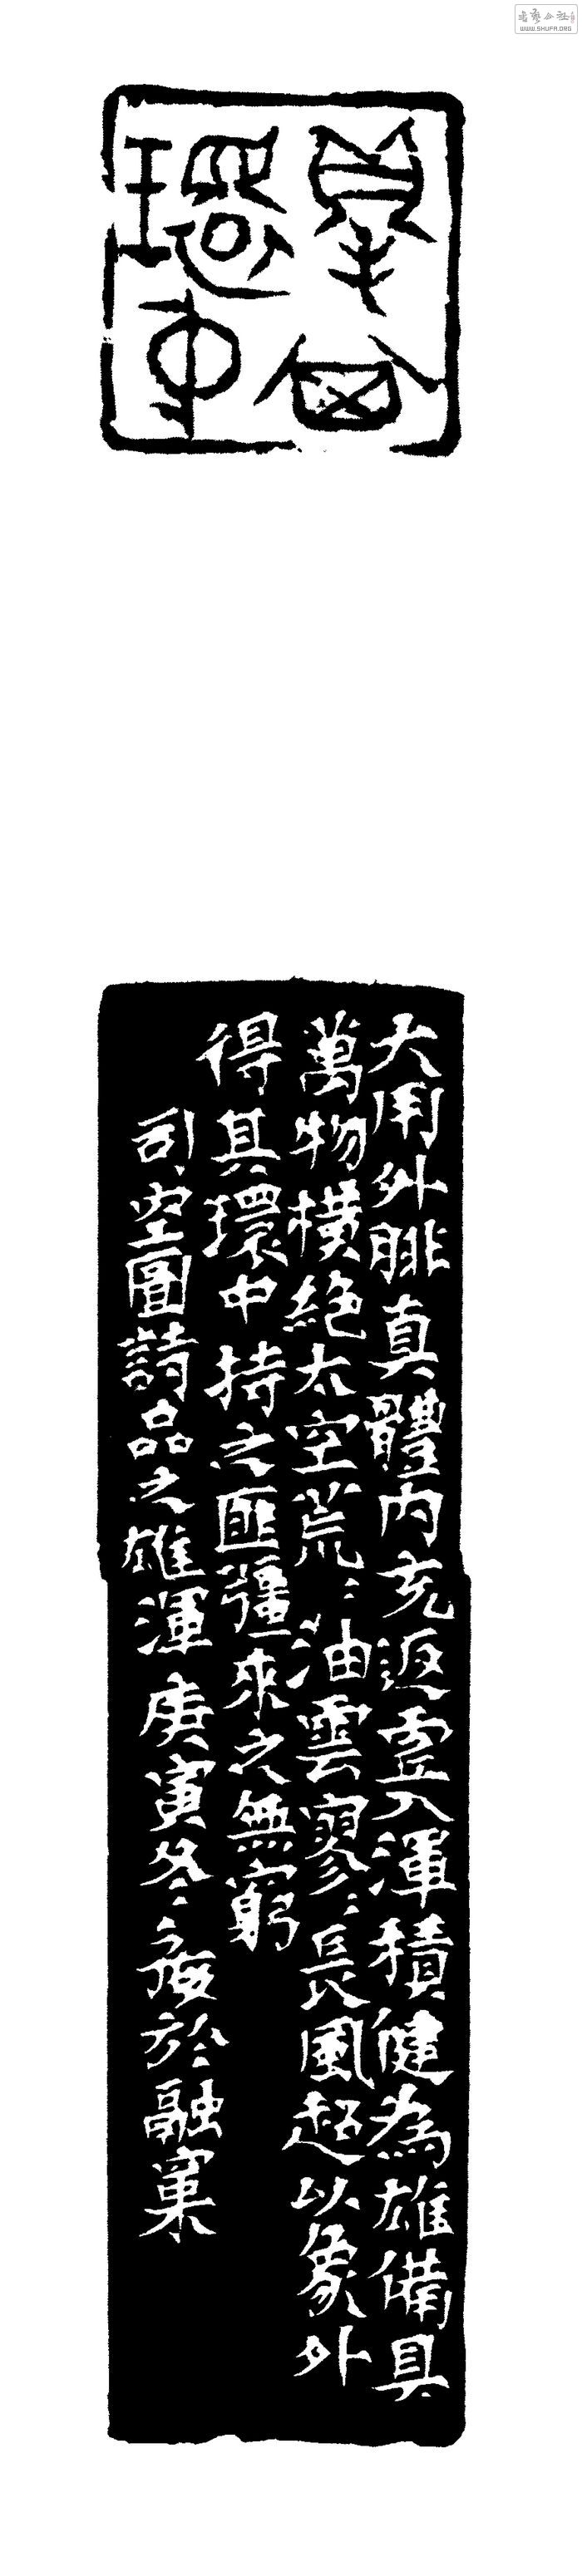 书艺公社
WWW.SHUFA.ORG
得其
環中
大用外腓真體内充返虛入渾積健為雄備具
萬物橫絕太空荒〻油雲寥〻長風超以象外
得其環中持之匪彊來之無窮
司空圖詩品之雄渾 庚寅冬夜於融窠